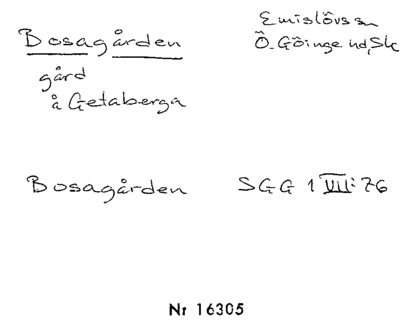 Bosagården
Emislövs sn
Ö. Göinge hd, Sk
gård
å Getaberga
Bosagården SGG 1 VIII: 76
Nr 16305